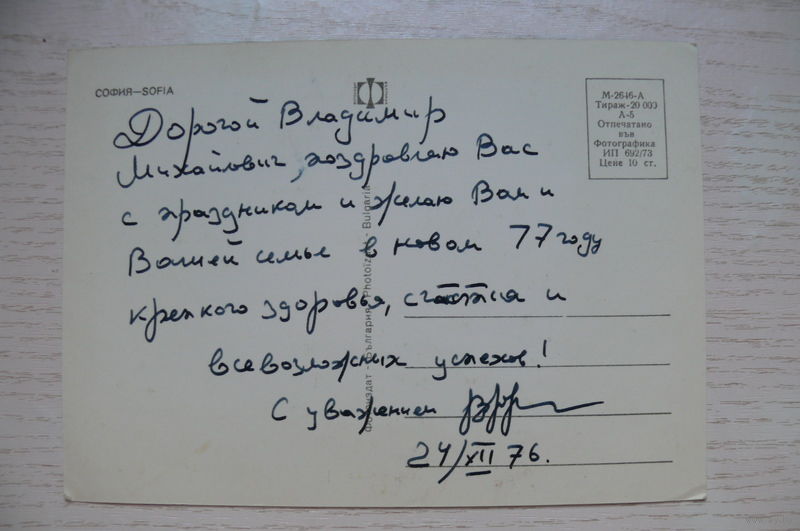 СОФИЯ—SOFIA
М-2646-А
Тираж-20 000
А-5
Отпечатано
във
Фотографика
ИП 692/73
Цене 10 ст.
Дорогой Владимир
Михайлович, поздравляю Вас
с праздником и желаю Вам и
Вашей семье в новом 77 году
крепкого здоровья, счастья и
всевозможных успехов!
С уважением
24/XII 76.
Фотоиздат - България - Photoizdat - Bulgaria